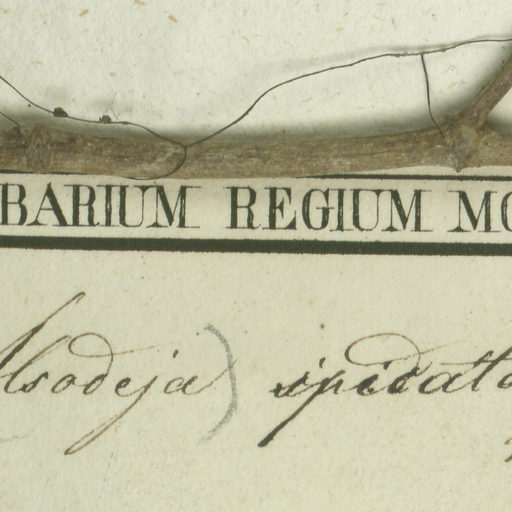 BARIUM REGIUM MO
Alsodeja) spicata